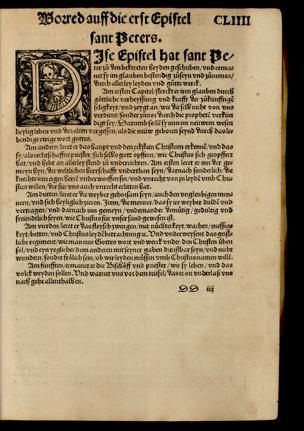 Vorred auff die erst Epistel
CLIIII
sant Peters.
DIse Epistel hat sant Pe-
ter zů den bekerten Heyden geschriben/ vnd erma-
net sy im glauben bestendig zůseyn vnd zůnemen/
durch allerley leyden vnd gůtte werck.
Am ersten Capitel sterckt er iren glauben durch
göttliche verheyssung vnd krafft der zůkünfftigē
seligkeyt/ vnd zeygt an/ wie die selb nicht von vns
verdient/ sonder zůuor durch die propheten verkün
digt sey/ Darumb sollē sy nun im newen wesen
heylig leben vnd des alten vergessen/ als die newgeboren seynd durch das le-
bendig ewige wort gottes.
Am andern leret er das haupt vnd den eckstain Christum erkennē/ vnd das
sy/ als rechtschaffne priester/ sich selbs gott opffern/ wie Christus sich geopffert
hat/ vnd hebt an allerley stend zů vnderrichten. Am ersten leret er
gemeyn/ der weltlichen Oberkeit vnderthon seyn/ darnach sonderlich/ die
knechte iren eigen herrē vnderworffen seyn/ vnd vnrecht von jn leyden vmb Chri
stus willen/ der für vns auch vnrecht erlitten hat.
Am dritten/ leret er die weyber gehorsam seyn/ auch den vngleubigen men-
nern/ vnd sich heyliglich zieren. Item/ die menner/ das sy ire weyber duldē vnd
vertragen/ vnd darnach ins gemeyn/ vnderander demütig/ gedültig vnd
freundtlich seyen/ wie Christus für vnser sünd gewesen ist.
Am vierden/ leret er das fleysch zwingen/ mit nüchterkeyt/ wachen/ messig-
keyt/ betten/ vnd Christus leydē betrachtung ꝛc. Vnd vnderweyset das geyst-
liche regiment/ wie man nur Gottes wort vnd werck
seyn/ vnd ein yeglicher dem andern mit seyner gaben dienstbar seyn/ vnd nicht
wundern/ sonder frölich sein/ ob wir leyden müssen vmb Christus namen wille.
Am fünfften/ ermanet er die Bischöff vnd priester/ wie sy leben/ vnd das
volck weyden sollen. Vnd warnet vns vor dem teüfel/ das er on vnderlaß vns
nach geht allenthalben.
DD iiij